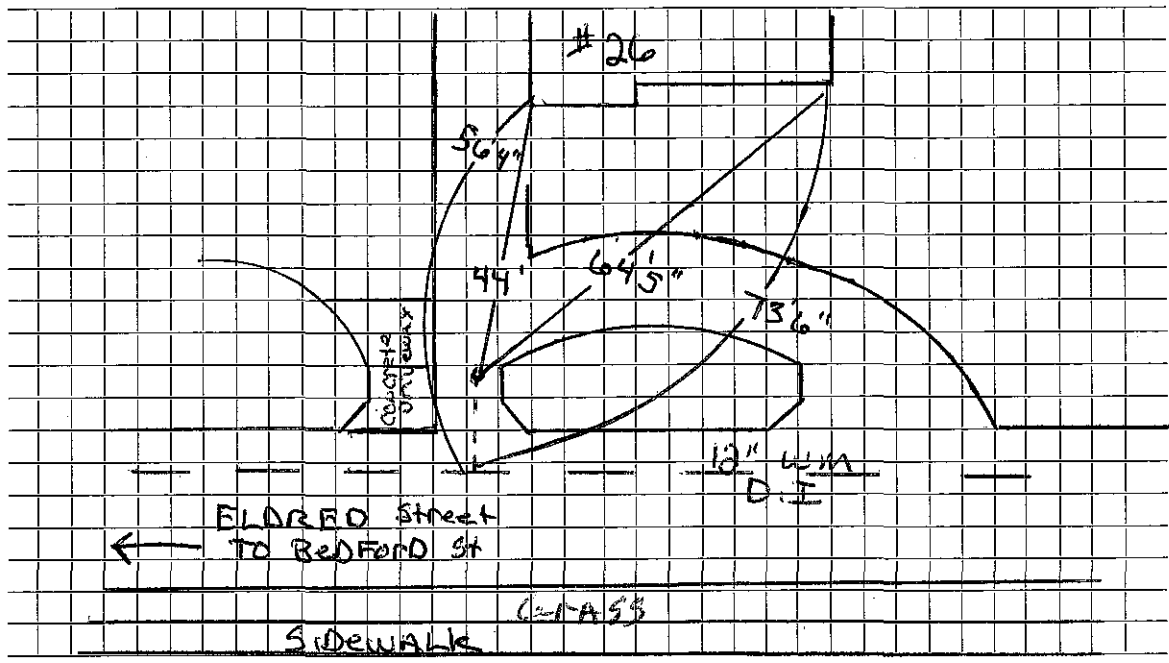 #26
56'4"
44'
64'5"
73'6"
CONCRETE
DRIVEWAY
12" WM
D.I
ELDRED Street
TO BEDFORD St
GRASS
SIDEWALK